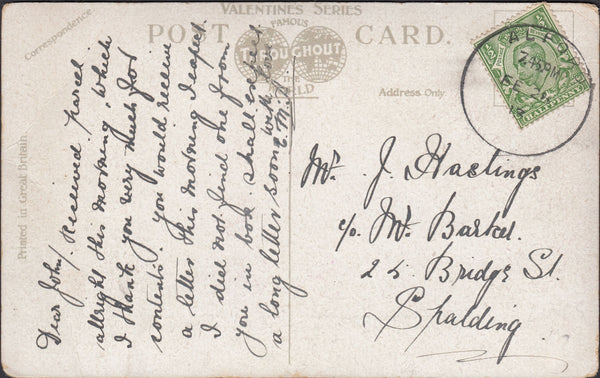 VALENTINES SERIES
FAMOUS
POST CARD.
THROUGHOUT
THE
WORLD
Correspondence
Address Only
Printed in Great Britain
HALFPENNY
ALFO
7.15 PM
FE
Dear John/. Received parcel
allright this morning, which
I thank you very much for
contents. you would receive
a letter this morning I expect
I did not find one from
you in box. shall expect
a long letter soon with love
Mr. J. Hastings
c/o. Mr. Barkel.
25 Bridge St.
Spalding.